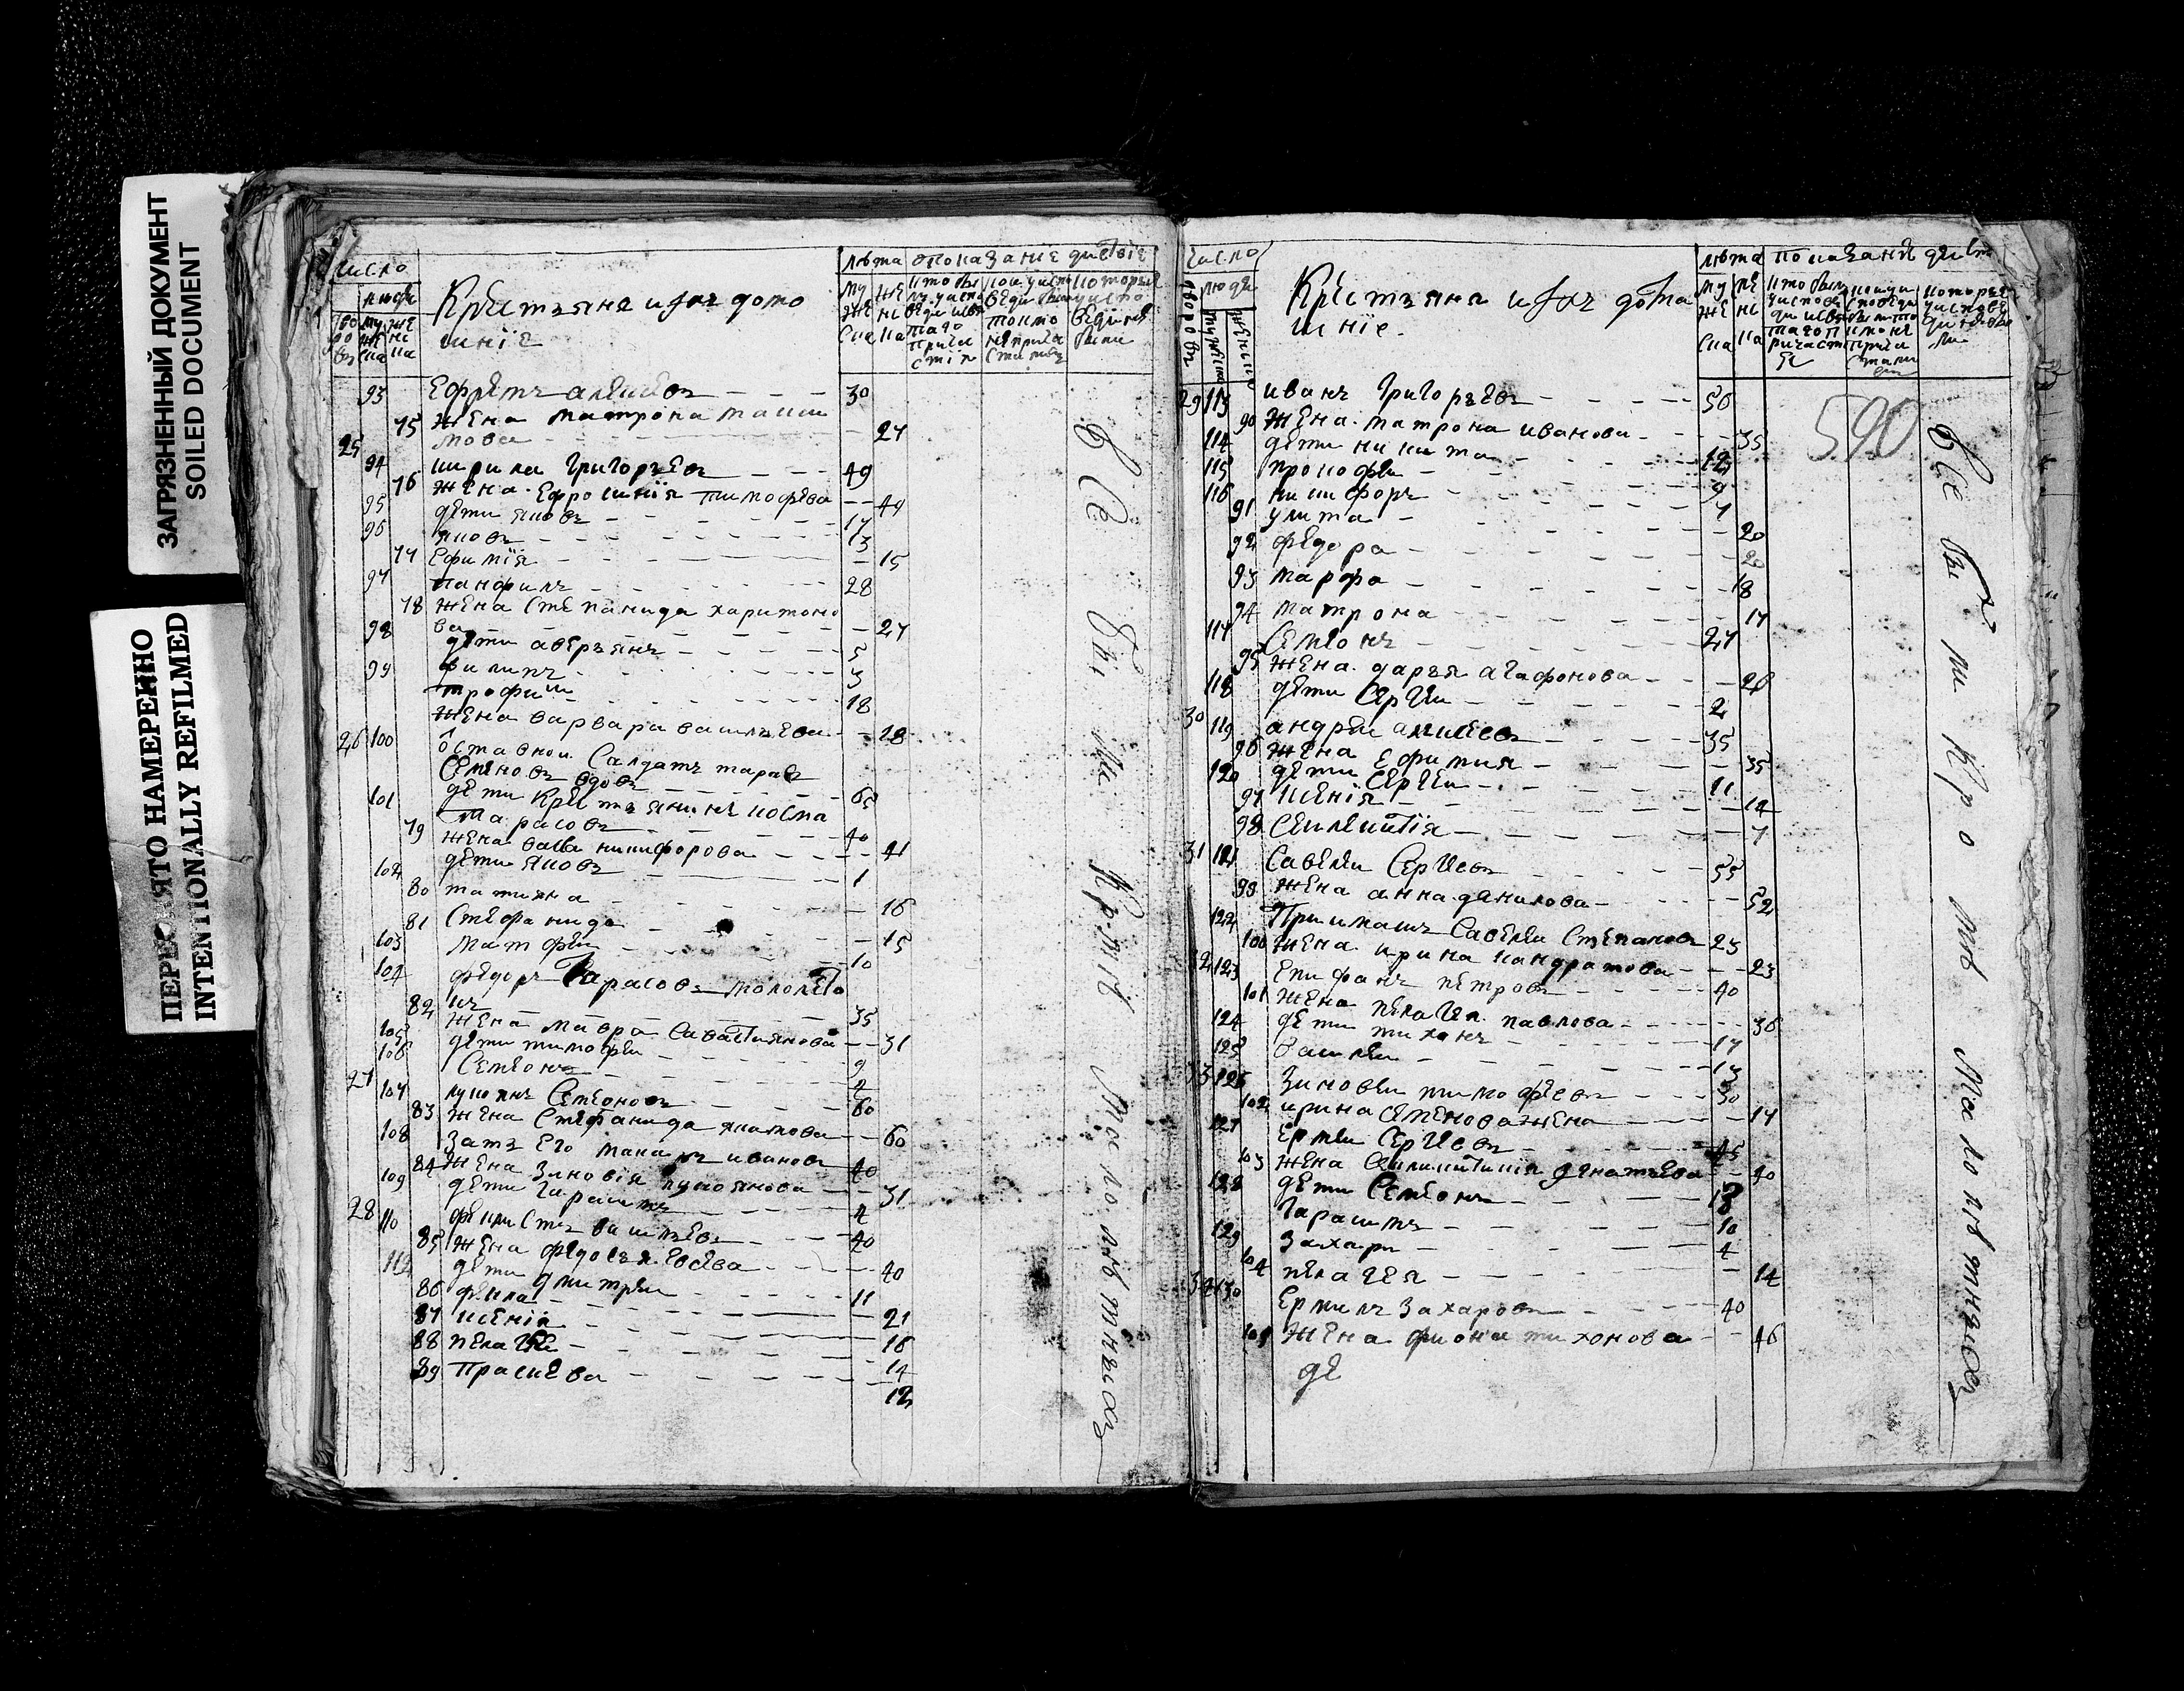 ЗАГРЯЗНЕННЫЙ ДОКУМЕНТ
SOILED DOCUMENT
ПЕРЕСНЯТО НАМЕРЕННО
INTENTIONALLY REFILMED
число
люди
Крестьяне и ихъ домо
шніе
лѣта
93 Ефремъ 30
75 жена матрона макси
мова 27
25 94 кирила григорьевъ 49
76 жена Ефросинія тимофѣва 44
95 дети яковъ 17
96 яковъ 13
77 Ефимія 15
97 панфилъ 28
78 жена степанида харитоно
ва 27
98 дети аверьянъ 5
99 филипъ 3
трофим 18
жена варвара васильева 18
26 100 ѡставнои салдатъ тарасъ
Семеновъ вдовъ 65
101 дети крестьянинъ косма
тарасовъ 40
79 жена васса никифорова 41
102 дети яковъ 1
80 татияна 16
81 Стефанида 15
103 матфеи 10
104 федоръ Тарасовъ малолето
къ 35
82 жена мавра Савастиянова 31
105 дети тимофеи 9
106 Семионъ 2
27 107 лукоянъ Семионовъ 60
83 жена Стефанида 60
108 зять его макаръ ивановъ 40
84 жена зиновія лукоянова 31
109 дети гарасимъ 2
28 110 феклистъ васильевъ 40
85 жена федосья евсева 40
112 дети дмитреи 11
86 фекла 21
87 ксенія 16
88 пелагѣе 14
89 прасковя 12
все бы ли кр-тѣ малолѣтныхъ
число
дворовъ
люди
мужеска
женска
Крестьяне и ихъ дома
шніе.
лѣта
590
29 113 иванъ григорьевъ 50
90 жена матрона иванова 35
114 дети никита 12
115 прокофеи 9
116 никифоръ 7
91 улита 20
92 федора 20
93 марфа 18
94 матрона 17
117 Семионъ 27
95 жена дарья агафонова 26
118 дети Сергеи 2
30 119 андреи алексѣевъ 35
96 жена ефимия 35
120 дети Сергеи 11
97 ксенія 12
98 7
31 121 Савелеи Сергѣевъ 55
99 жена анна данилова 52
122 Приимашъ Савелеи Степановъ 23
100 жена ирина кандратова 23
32 123 Епифанъ петровъ 40
101 жена пелагея павлова 36
124 дети тихонъ 17
125 василеи 13
33 126 зиновеи тимофѣевъ 30
102 ирина семенова жена 17
127 Ермеи Сергѣевъ 45
103 жена игнатьева 40
128 дети Семионъ 18
гарасимъ 10
129 захари 4
104 пелагея 14
34 130 Ермилъ захаровъ 40
105 жена фиона тихонова 46
де
все бы ли кромѣ малолѣтныхъ